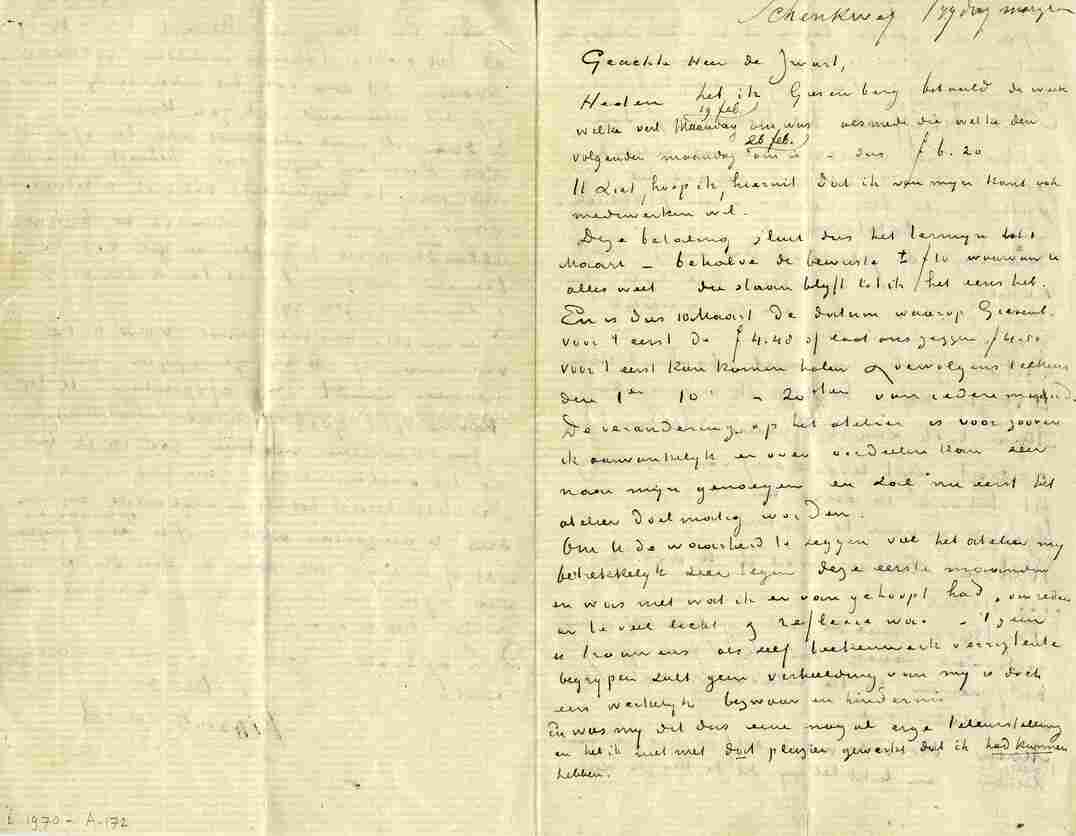 Schenkweg Vrydag morgen
Geachte Heer de Zwart,
Heden heb ik Giesenberg betaald de week
19 feb.
welke verl Maandag om was alsmede die welke den
26 feb.
volgenden maandag om is - dus f 6.20
U ziet, hoop ik, hieruit dat ik van myn kant ook
medewerken wil.
Deze betaling sluit dus het termyn tot 1
Maart - behalve de bewuste ± f 10 waarvan U
alles weet die staan blyft tot ik het eens heb.
En is dus 10 Maart de datum waarop Giesenb.
voor 't eerst de f 4.40 of laat ons zeggen f 4.50
voor 't eerst kan komen halen & vervolgens telkens
den 1en 10 - 20sten van iedere maand.
De verandering op het atelier is voor zoover
ik aanvankelyk er over oordeelen kan zeer
naar myn genoegen en zal nu eerst het
atelier doelmatig worden.
Om U de waarheid te zeggen viel het atelier my
betrekkelyk zeer tegen deze eerste maanden
en was niet wat ik er van gehoopt had, om reden
er te veel licht & reflexie was - 't geen
U trouwens als zelf teekenwerk verrigtende
begrypen zult geen verbeelding van my is doch
een werkelyk bezwaar en hindernis
En was my dit dus eene nog al erge teleurstelling
en heb ik niet met dat plezier gewerkt dat ik had kunnen
hebben.
L 1970 - A-172